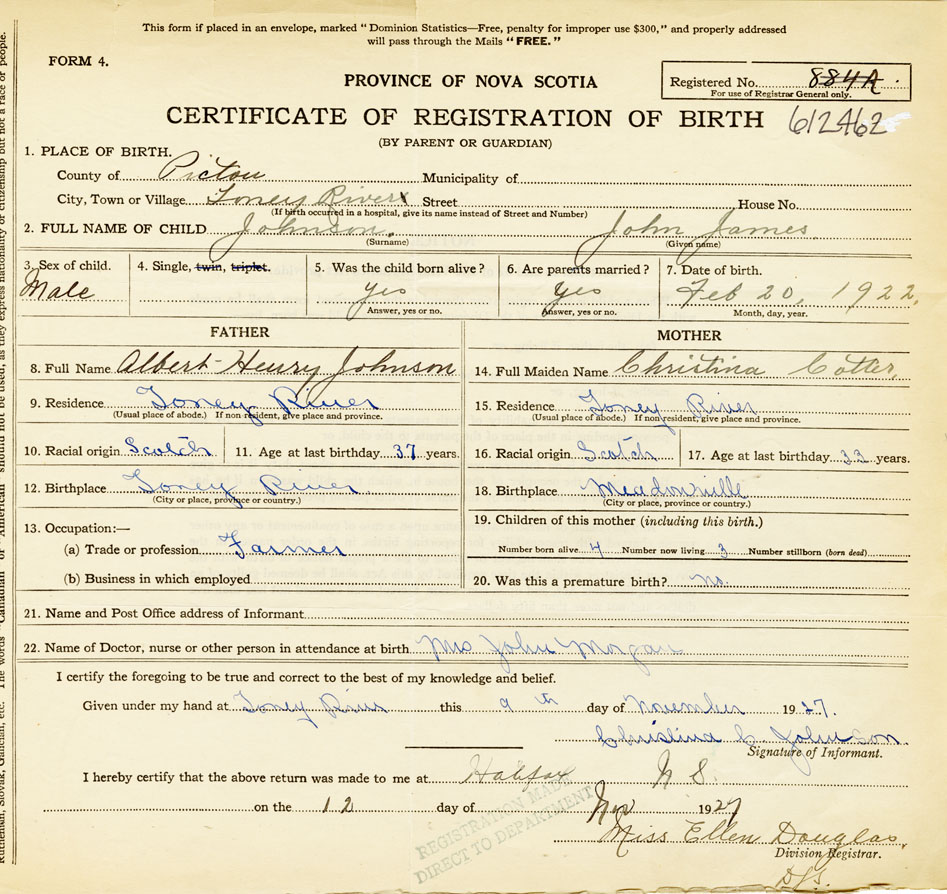 This form if placed in an envelope, marked "Dominion Statistics—Free, penalty for improper use $300," and properly addressed
will pass through the Mails "FREE."
FORM 4.
PROVINCE OF NOVA SCOTIA
Registered No. 884A
For use of Registrar General only.
CERTIFICATE OF REGISTRATION OF BIRTH 612462
(BY PARENT OR GUARDIAN)
1. PLACE OF BIRTH.
County of Pictou Municipality of
City, Town or Village Toney River Street House No.
(If birth occurred in a hospital, give its name instead of Street and Number)
2. FULL NAME OF CHILD Johnson, John James
(Surname) (Given name)
3. Sex of child. 4. Single, twin, triplet. 5. Was the child born alive? 6. Are parents married? 7. Date of birth.
Male yes yes Feb 20, 1922
Answer, yes or no. Answer, yes or no. Month, day, year.
FATHER MOTHER
8. Full Name Albert Henry Johnson 14. Full Maiden Name Christina Cotter
9. Residence Toney River 15. Residence Toney River
(Usual place of abode.) If non resident, give place and province. (Usual place of abode.) If non resident, give place and province.
10. Racial origin Scotch 11. Age at last birthday 37 years. 16. Racial origin Scotch 17. Age at last birthday 33 years.
12. Birthplace Toney River 18. Birthplace Meadowville
(City or place, province or country.) (City or place, province or country.)
13. Occupation:— 19. Children of this mother (including this birth.)
(a) Trade or profession Farmer Number born alive 4 Number now living 3 Number stillborn (born dead)
(b) Business in which employed 20. Was this a premature birth? no.
21. Name and Post Office address of Informant
22. Name of Doctor, nurse or other person in attendance at birth Mrs John Morgan
I certify the foregoing to be true and correct to the best of my knowledge and belief.
Given under my hand at Toney River this 9th day of November 1927.
Christina C Johnson.
Signature of Informant.
I hereby certify that the above return was made to me at Halifax N S.
on the 12 day of Nov 1927
REGISTRATION MADE
DIRECT TO DEPARTMENT
Miss Ellen Douglas,
Division Registrar.